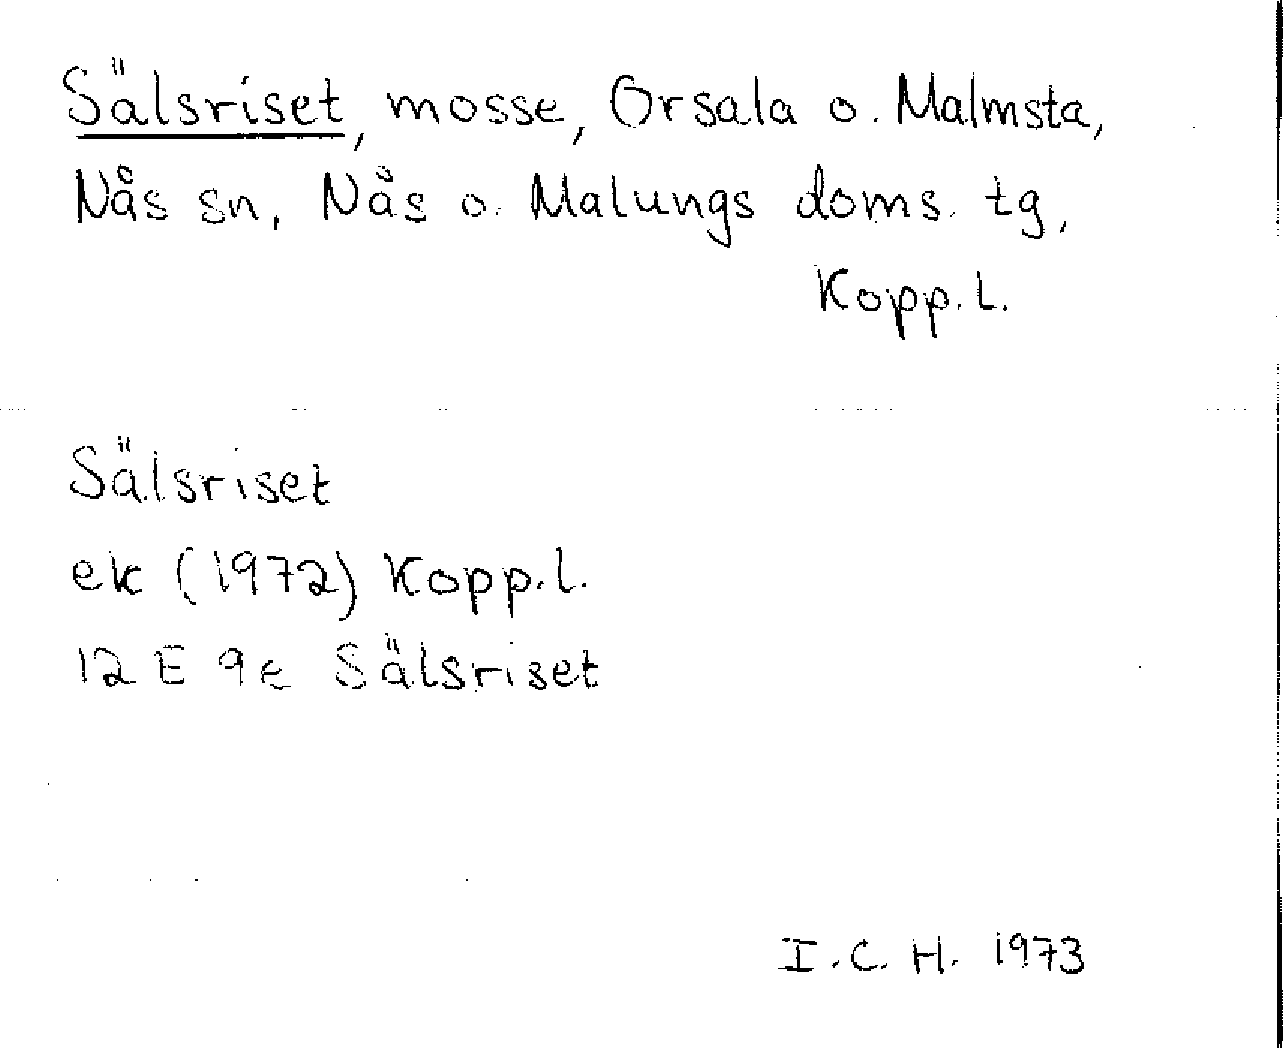 Sälsriset, mosse, Orsala o. Malmsta,
Nås sn, Nås o. Malungs doms. tg,
Kopp. l.
Sälsriset
ek (1972) Kopp. l.
12 E 9e Sälsriset
I. C. H. 1973